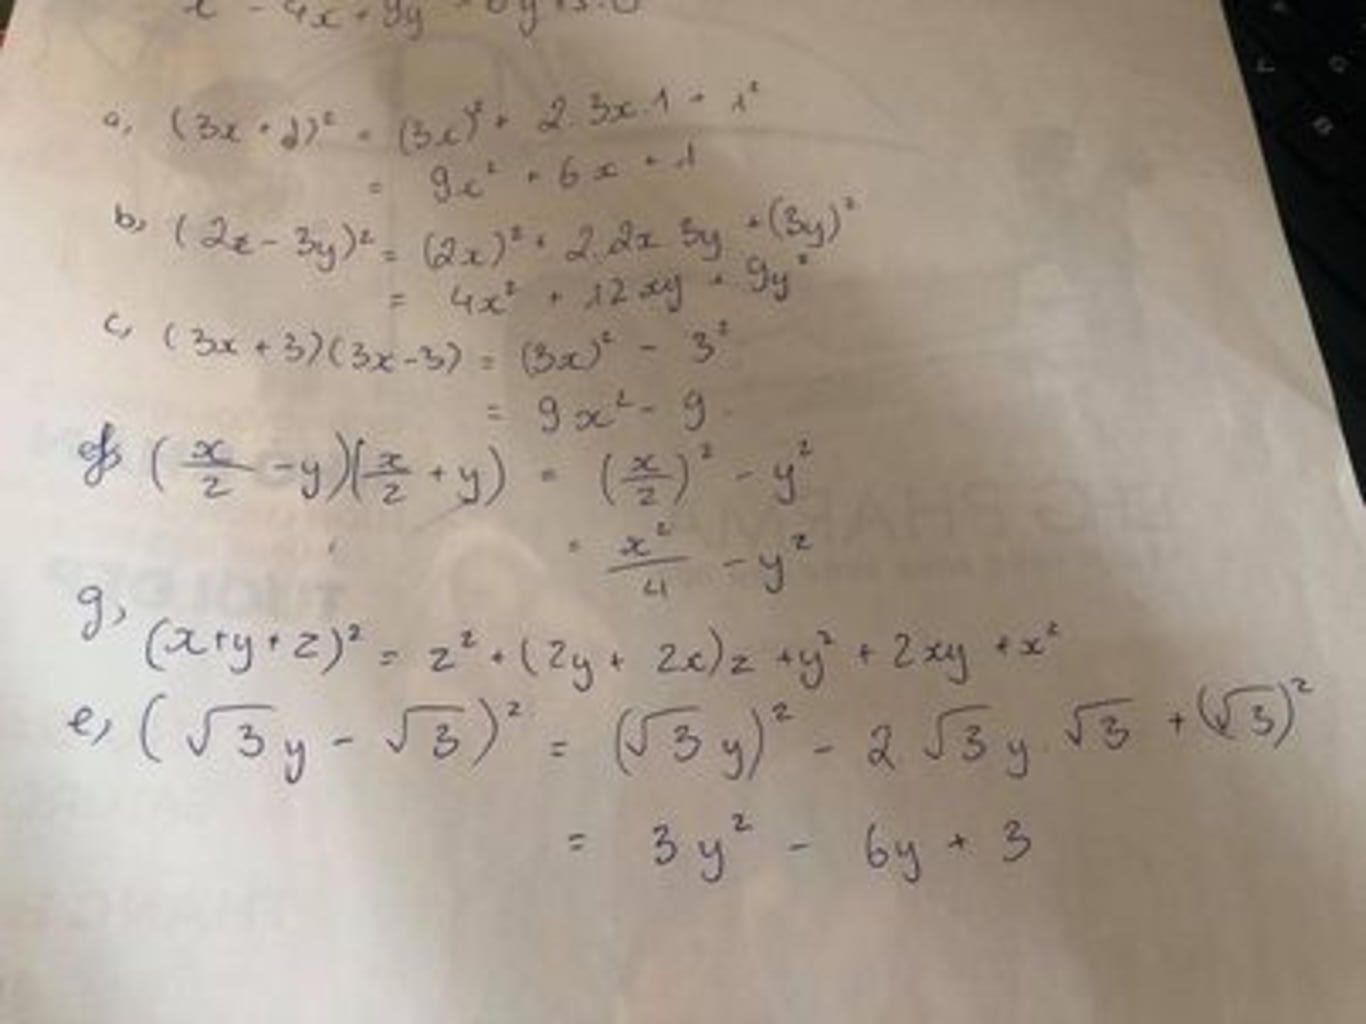 a, (3x + 1)² = (3x)² + 2.3x.1 + 1²
= 9x² + 6x + 1
b, (2x - 3y)² = (2x)² + 2.2x 3y + (3y)²
= 4x² + 12xy + 9y²
c, (3x + 3)(3x - 3) = (3x)² - 3²
= 9x² - 9
(x/2 - y)(x/2 + y) = (x/2)² - y²
= x²/4 - y²
g, (x+y+z)² = z² + (2y + 2x)z + y² + 2xy + x²
e, (√3y - √3)² = (√3y)² - 2√3y.√3 + (√3)²
= 3y² - 6y + 3